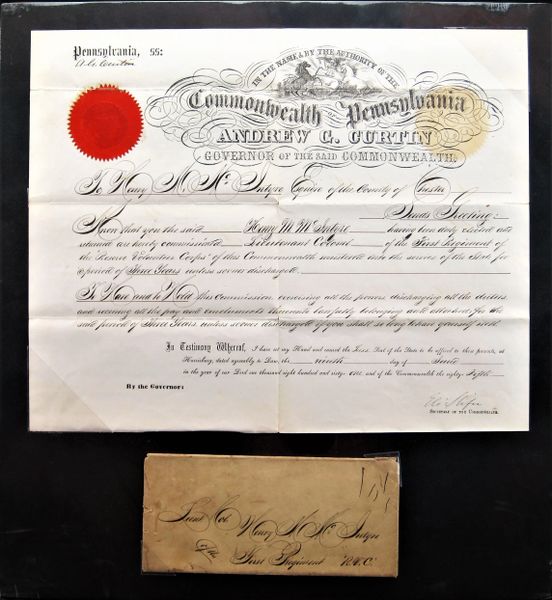 Pennsylvania, ss:
A. G. Curtin
IN THE NAME & BY THE AUTHORITY OF THE
Commonwealth OF Pennsylvania
ANDREW G. CURTIN
GOVERNOR OF THE SAID COMMONWEALTH.
To Henry M. McIntyre Esquire of the County of Chester
Sends Greeting:
Know that you the said Henry M McIntyre having been duly elected and
returned are hereby commissioned Lieutenant Colonel of the First Regiment of
the Reserve Volunteer Corps of this Commonwealth mustered into the service of the State for
a period of Three Years unless sooner discharged.
To Have and to Hold this Commission exercising all the powers discharging all the duties
and receiving all the pay and emoluments thereunto lawfully belonging and attached for the
said period of Three Years, unless sooner discharged if you shall so long behave yourself well
In Testimony Whereof, I have set my Hand and caused the Less. Seal of the State to be affixed to these presents, at
Harrisburg, dated agreeably to Law, the ninth day of June
in the year of our Lord one thousand eight hundred and sixty one and of the Commonwealth the eighty Fifth
By the Governor:
Eli Slifer
SECRETARY OF THE COMMONWEALTH.
Lieut Col. Henry M. McIntyre
of the
First Regiment "R.V.C."